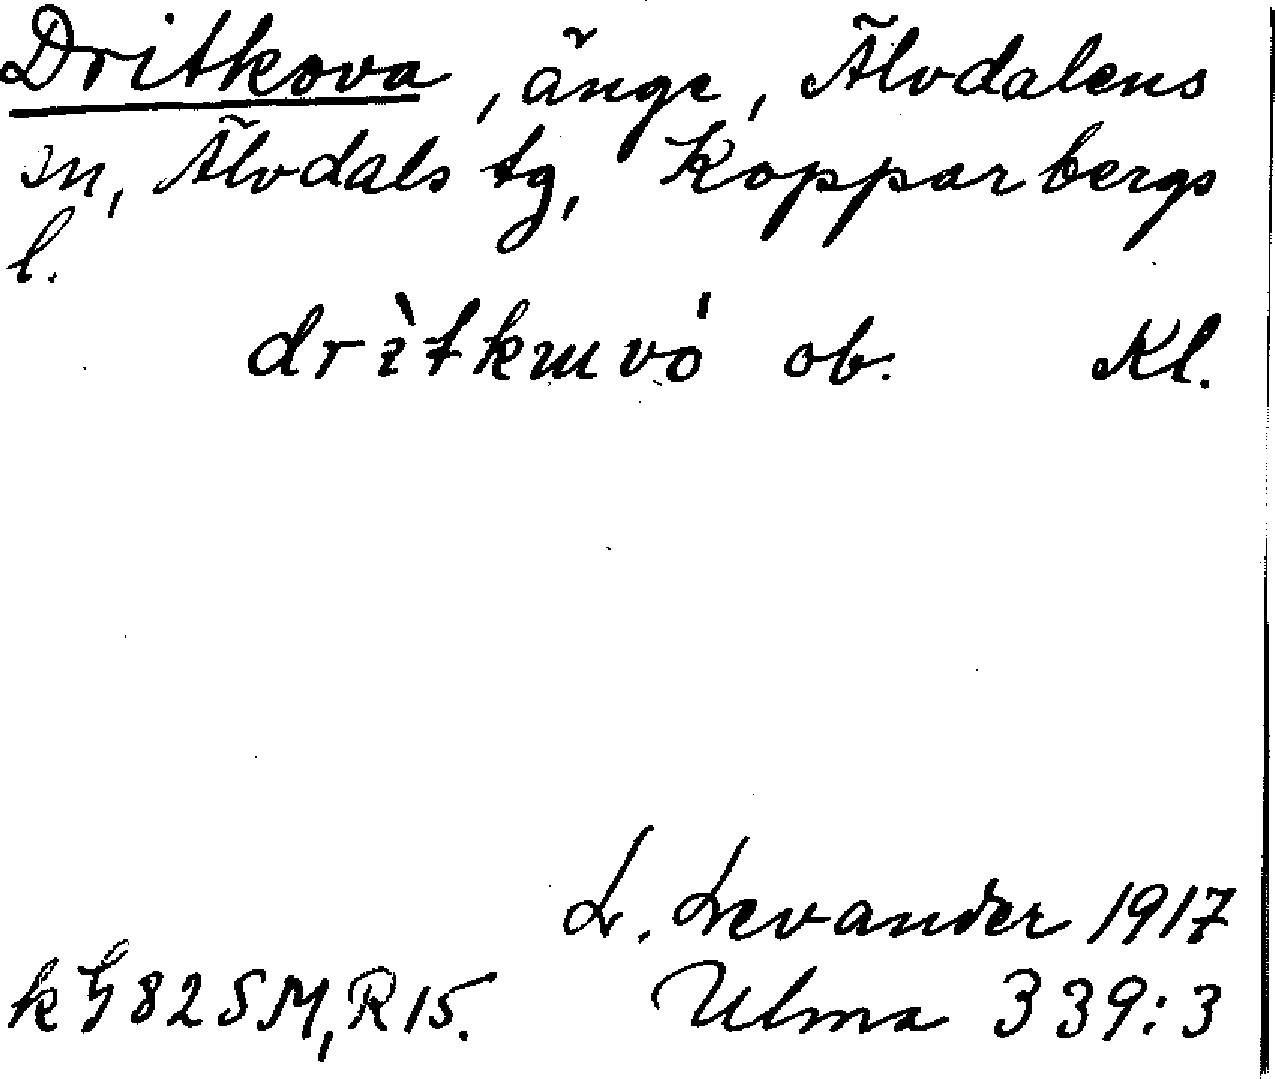 Dritkova, änge, Älvdalens
sn, Älvdals tg, Kopparbergs
l.
drìtkɯvó ob. Kl.
L. Levander 1917
k G 82 SM, R 15. Ulma 339:3